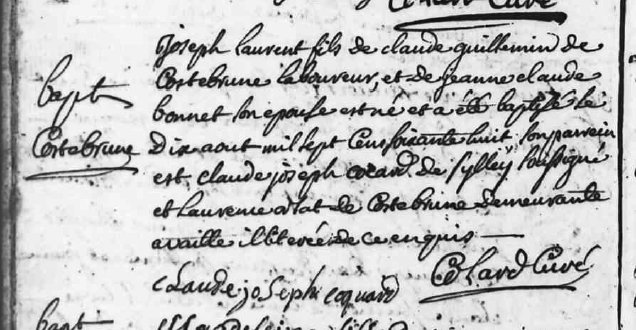 Curé
Joseph laurent fils de claude guillemin de
bapt Cortebrune laboureur, et de jeanne claude
bonnet son epouse est né et a été baptisé le
Cortebrune Dix aout mil sept Cent soixante huit son parrein
est claude joseph cocard de sylley soussigné
et Laurence de Cortebrune demeurante
illiterée de ce enquis
claude joseph coquard Colard Curé
bapt